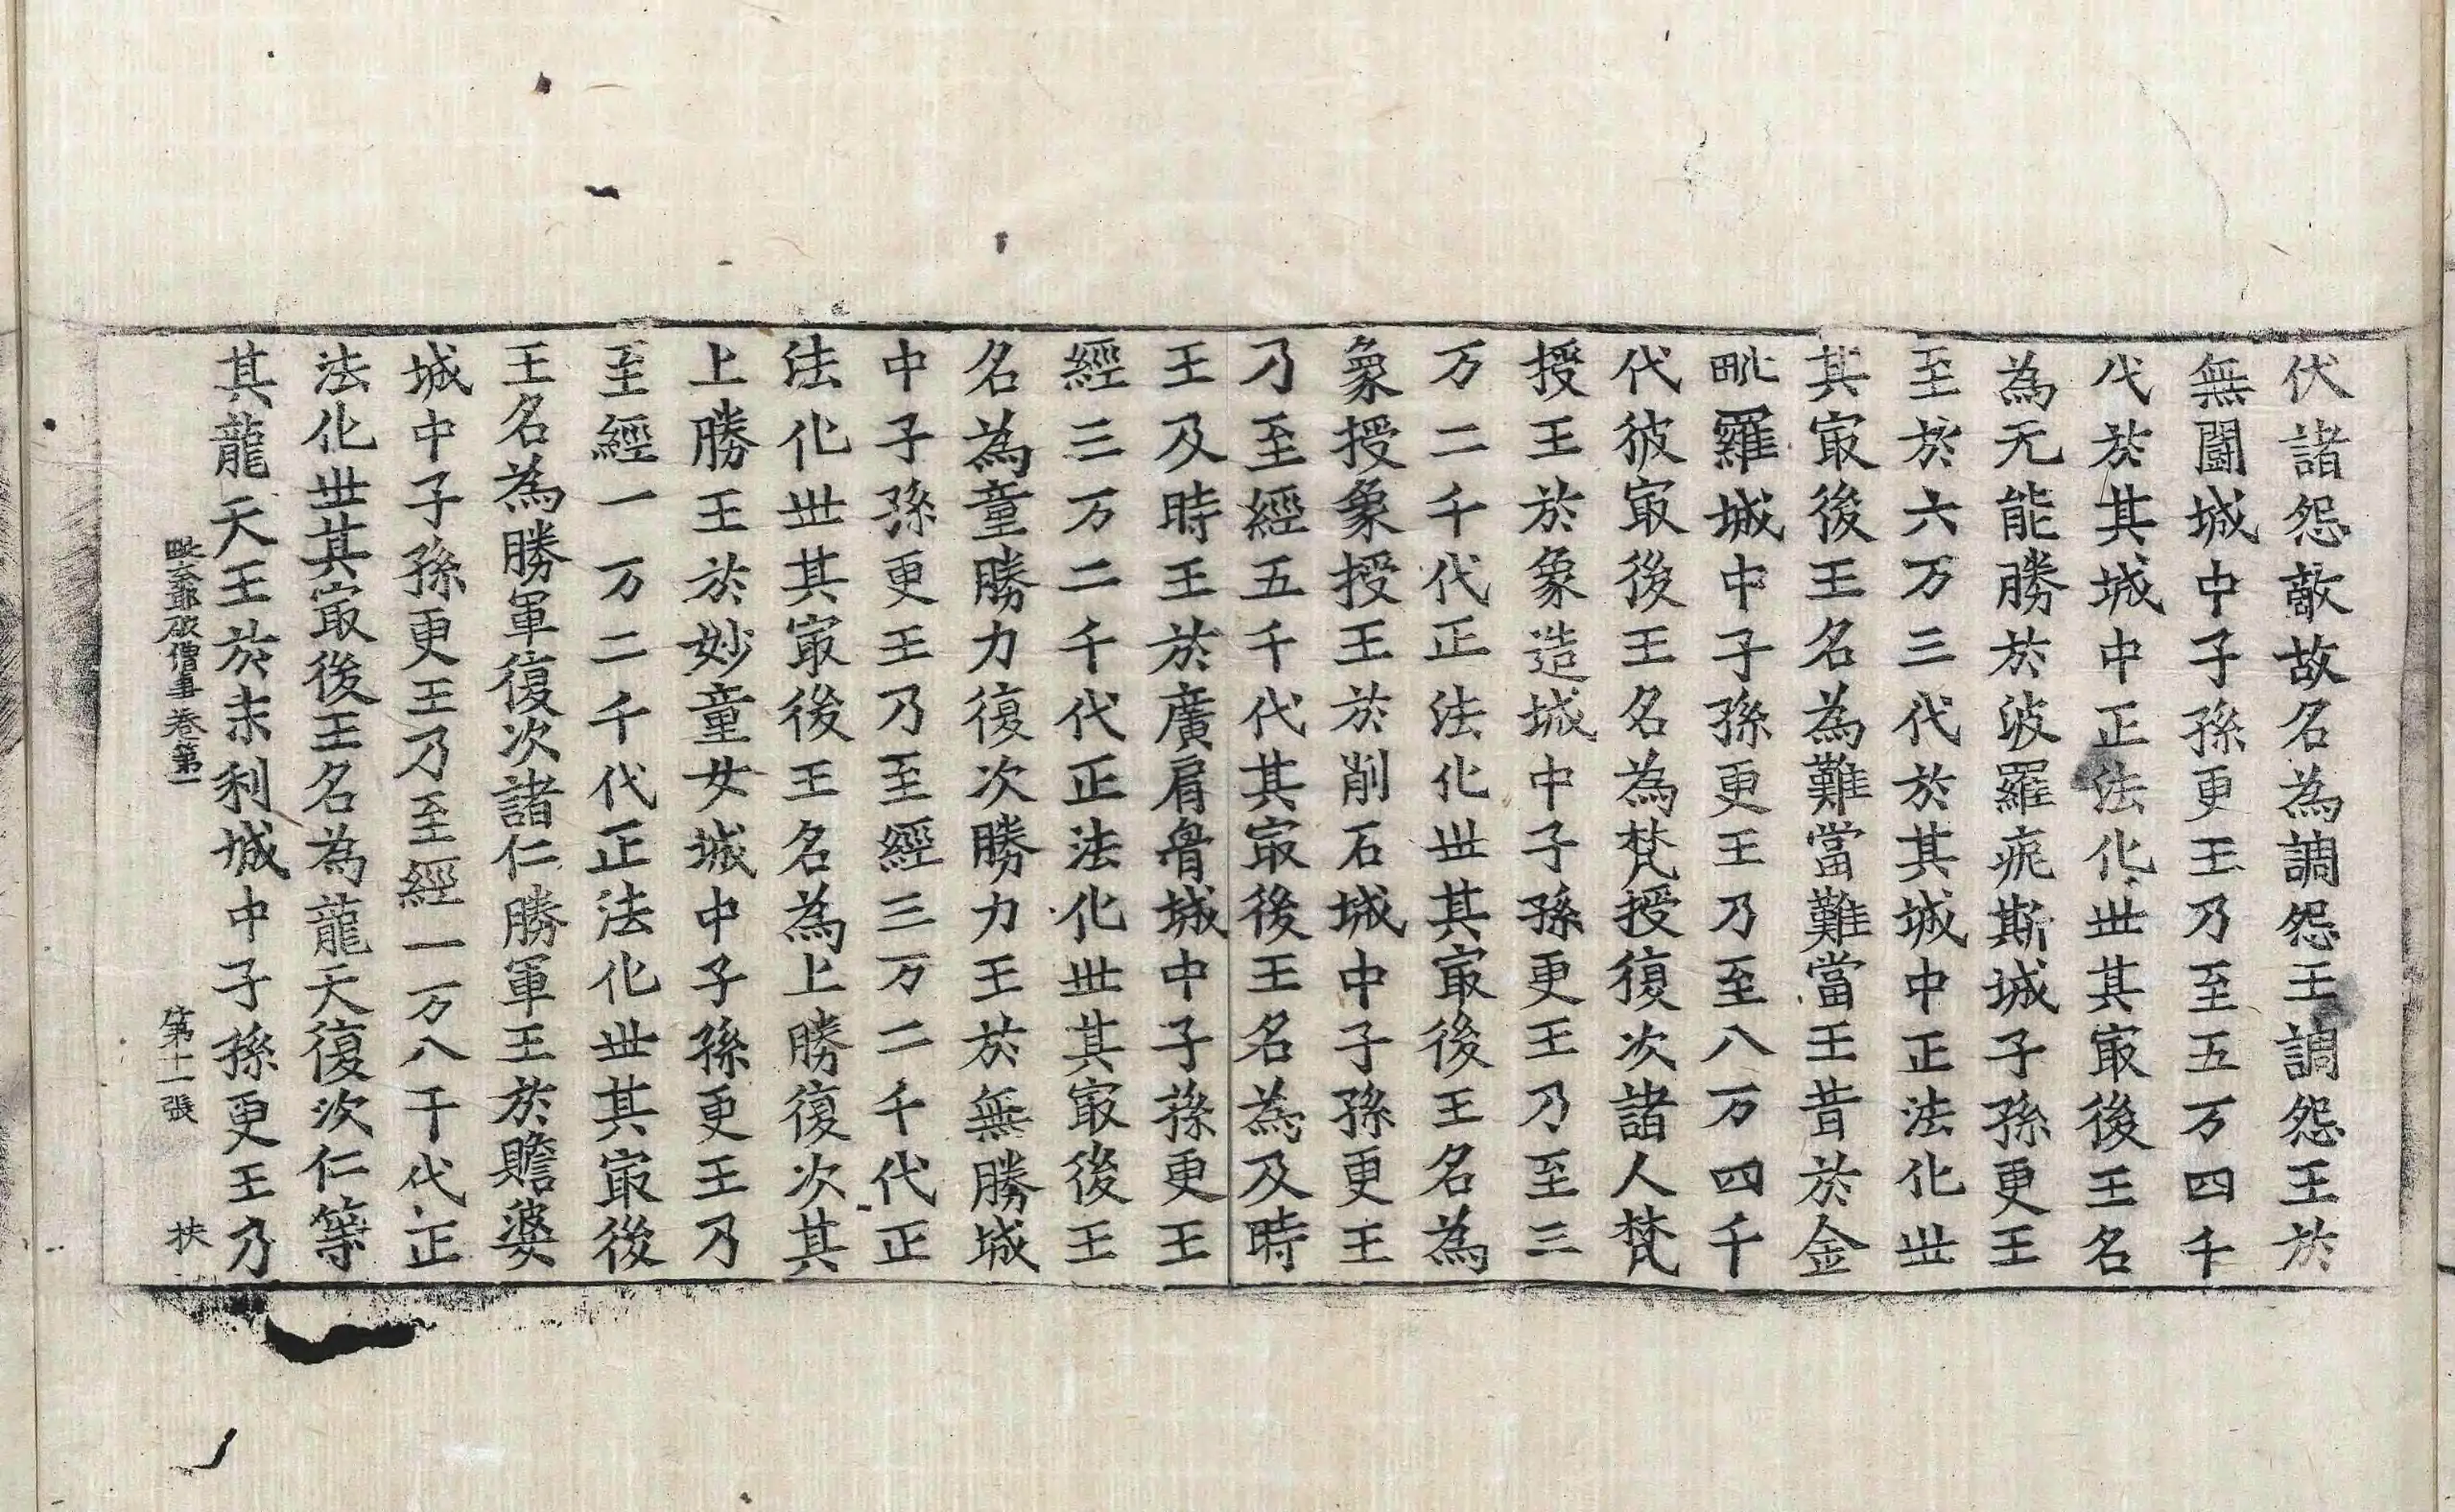 伏諸怨敵故名為調怨王調怨王於
無鬪城中子孫更王乃至五万四千
代於其城中正法化世其㝡後王名
為无能勝於波羅痆斯城子孫更王
至於六万三代於其城中正法化世
其㝡後王名為難當難當王昔於金
毗羅城中子孫更王乃至八万四千
代彼㝡後王名為梵授復次諸人梵
授王於象造城中子孫更王乃至三
万二千代正法化世其㝡後王名為
象授象授王於削石城中子孫更王
乃至經五千代其㝡後王名為及時
王及時王於廣肩骨城中子孫更王
經三万二千代正法化世其㝡後王
名為童勝力復次勝力王於無勝城
中子孫更王乃至經三万二千代正
法化世其㝡後王名為上勝復次其
上勝王於妙童女城中子孫更王乃
至經一万二千代正法化世其㝡後
王名為勝軍復次諸仁勝軍王於贍婆
城中子孫更王乃至經一万八千代正
法化世其㝡後王名為龍天復次仁等
其龍天王於末利城中子孫更王乃
毗奈耶破僧事卷第一 第十一張 扶